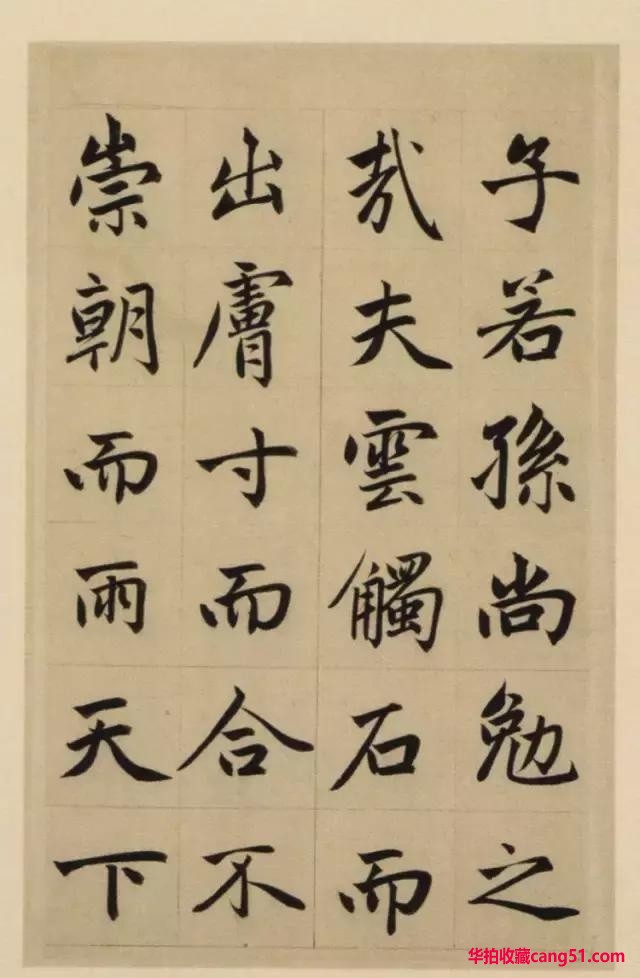 子若孫尚勉之
哉夫雲觸石而
出膚寸而合不
崇朝而雨天下
华拍收藏cang51.com